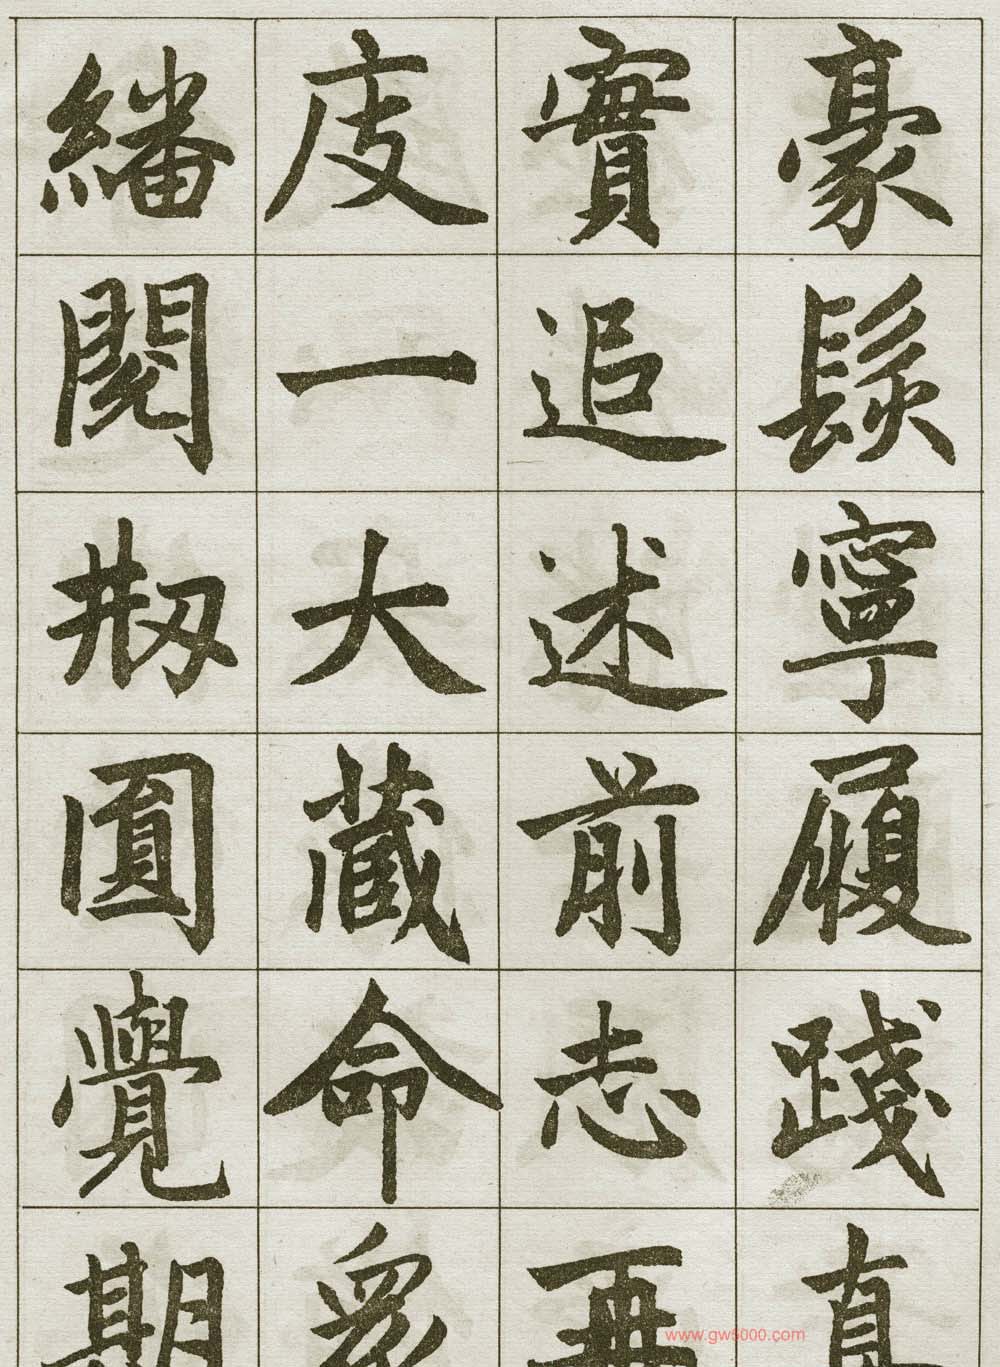 豪髮寧履踐真
實追述前志再
庋一大藏命眾
繙閱刱圓覺期
www.gw5000.com